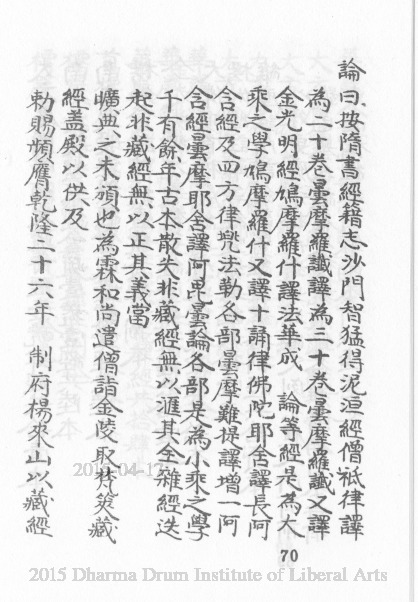 論曰按隋書經籍志沙門智猛得泥洹經僧祇律譯
為二十卷曇摩羅讖譯為三十卷曇摩羅讖又譯
金光明經鳩摩羅什譯法華成 論等經是為大
乘之學鳩摩羅什又譯十誦律佛陀耶舍譯長阿
含經及四方律兜法勒各部曇摩難提譯增一阿
含經曇摩耶舍譯阿毘曇論各部是為小乘之學
千有餘年古本散失非藏經無以滙其全雜經迭
起非藏經無以正其義當
曠典之未頒也為霖和尚遣僧詣金陵取梵筴藏
經蓋殿以供及
勅賜頻膺乾隆二十六年 制府楊來山以藏經
2015-04-17
70
2015 Dharma Drum Institute of Liberal Arts